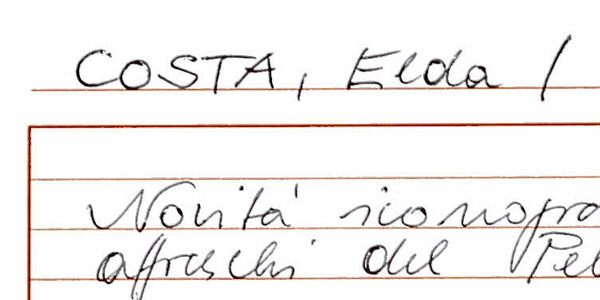 COSTA, Elda /
Novità iconogra
affreschi del Pel